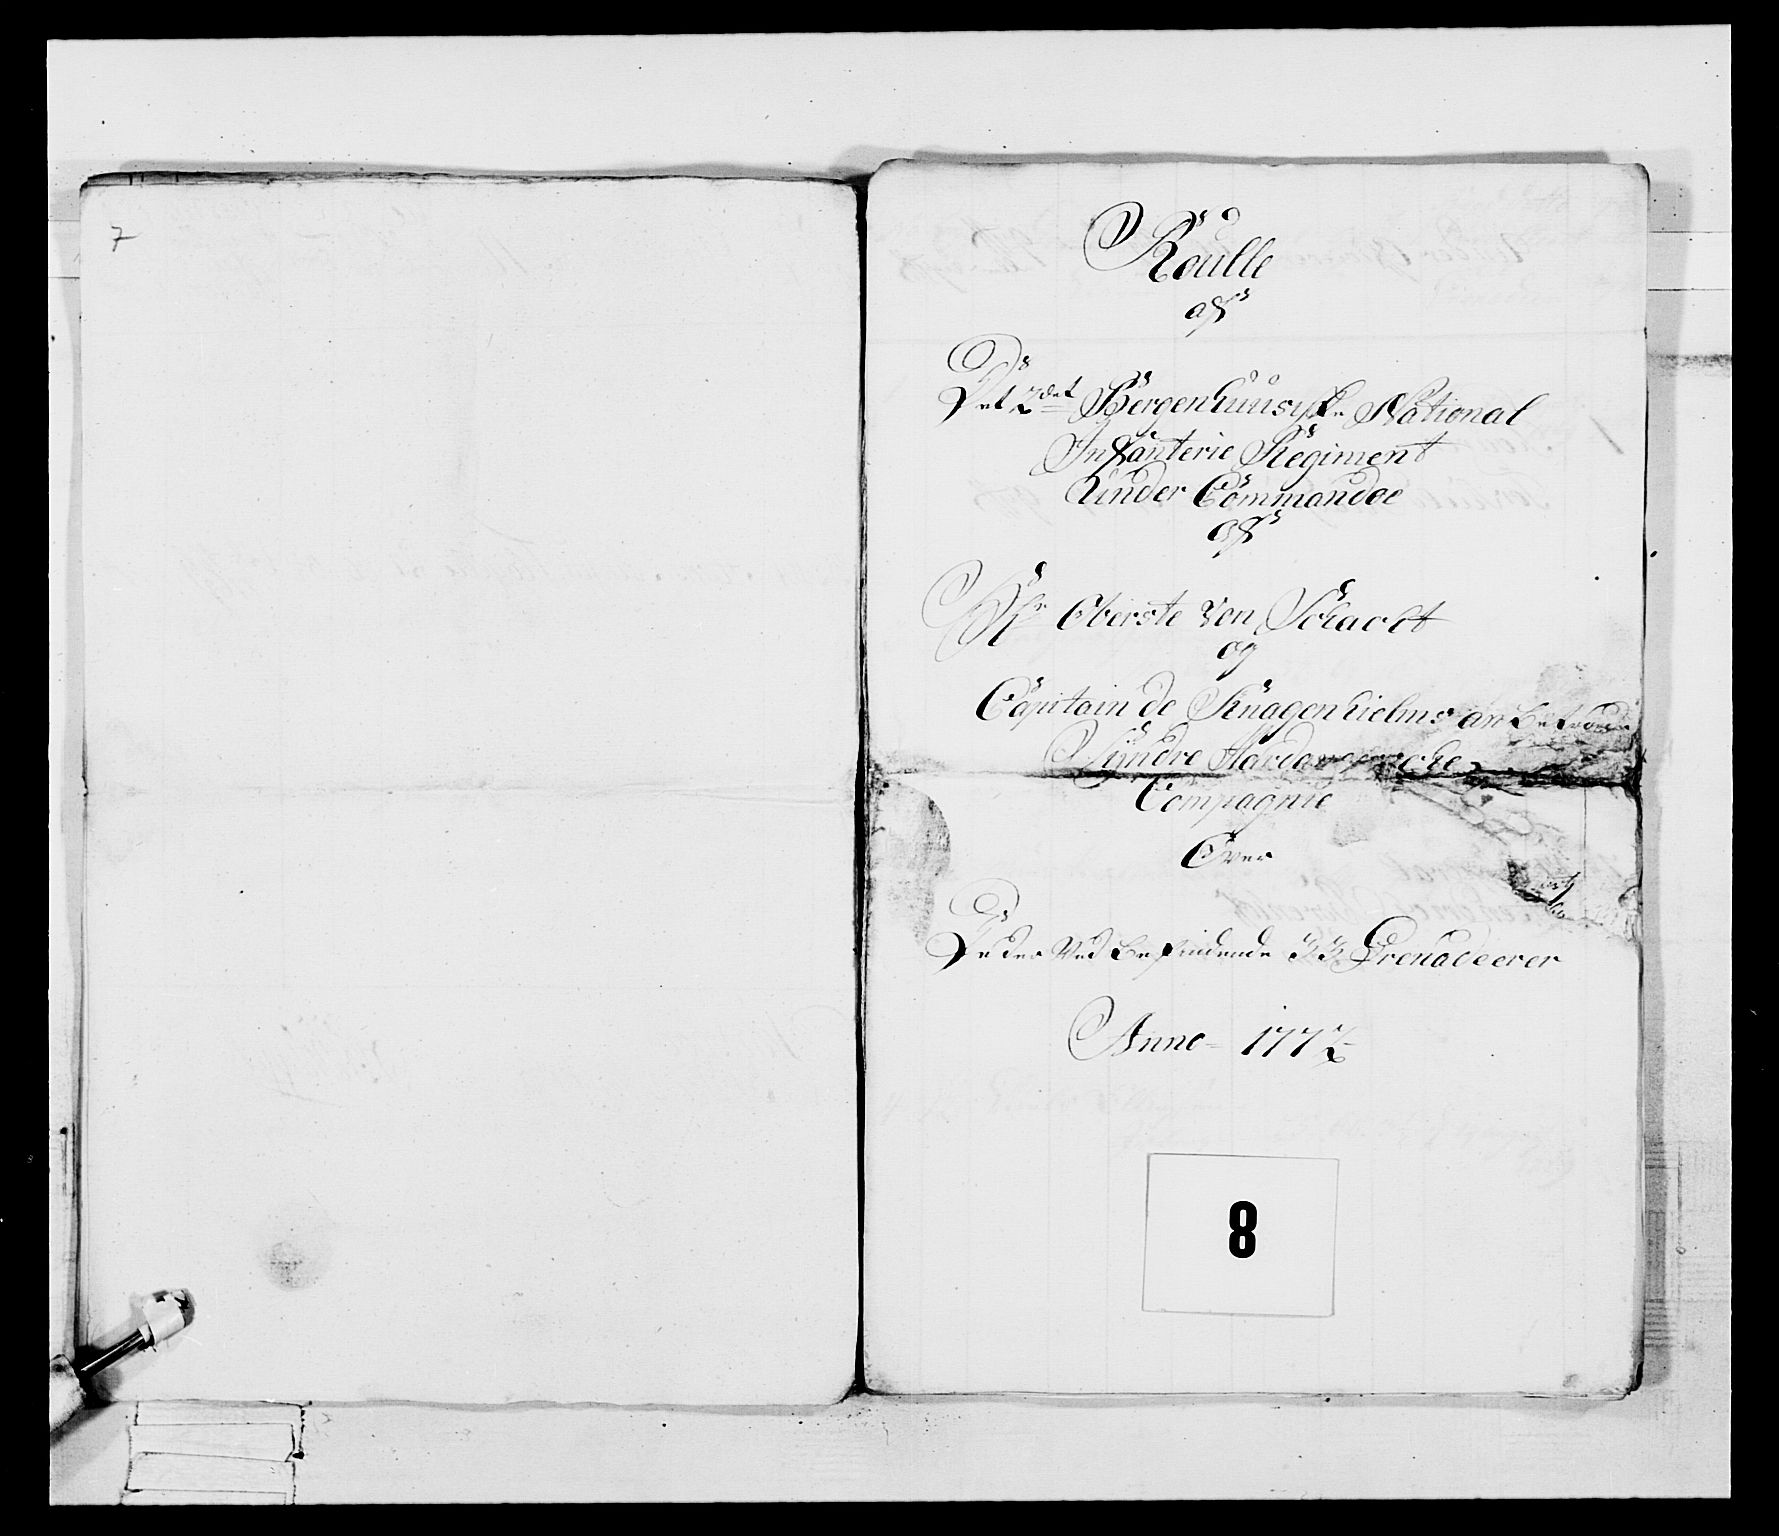 7
Roulle
af
Det 2det Bergenhuusiske National
Infanterie Regiment
Under Commandoe
af
Hr Oberste Von Schacht
og
Capitain de Knagenhielms anbetroede
Nyndre Hardangerske
Compagnie
Over
De der Ved befindende 33 Grenadeerer
Anno 1772
8